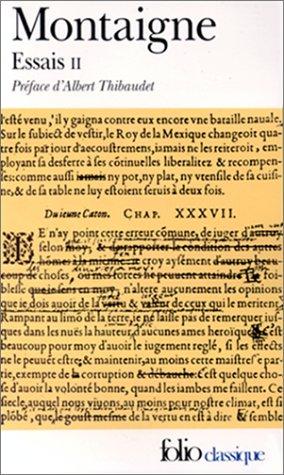 Montaigne
Essais II
Préface d'Albert Thibaudet
l'esté venu, il y gaigna contre eux encore vne bataille nauale.
Sur le subiect de vestir, le Roy de la Mexique changeoit quatre
fois par iour d'accoustremens, iamais ne les reiteroit, em-
ployant sa desferre à ses cõtinuelles liberalitez & recompen-
ses: comme aussi iamais ny pot, ny plat, ny vtensile de sa cuisi-
ne, & de sa table ne luy estoient seruis à deux fois.
Du ieune Caton. CHAP. XXXVII.
IE n'ay point cette erreur cõmune, de iuger d'autruy
selon moy, & de rapporter la condition des au-
hommes à la mienne croy aysément d'autruy
beaucoup de choses, ou mes forces ne peuuent attaindre.
foiblesse n'altere aucunement les opinions
que ie dois auoir de la & valeur de ceux qui le meritent.
Rampant au limon de la terre, ie ne laisse pas de remerquer
iusques dans les nuës la hauteur, d'aucunes ames heroïques: C'est
beaucoup pour moy d'auoir le iugement reglé, si les effects
ne le peuuẽt estre, & maintenir, au moins cette maistresse par-
tie, exempte de la corruption & : c'est quelque chose
d'auoir la volonté bonne, quand les iambes me faillent. Ce
siecle, auquel nous viuons, au moins pour nostre climat, est
si plombé, que le goust mesme de la vertu en est à dire & sem-
folio classique